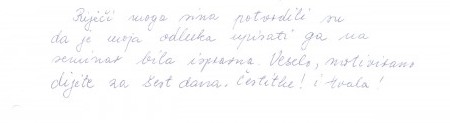 Riječi moga sina potvrdili su
da je moja odluka upisati ga na
seminar bila ispravna. Veselo, motivirano
dijete za šest dana. Čestitke! i hvala!